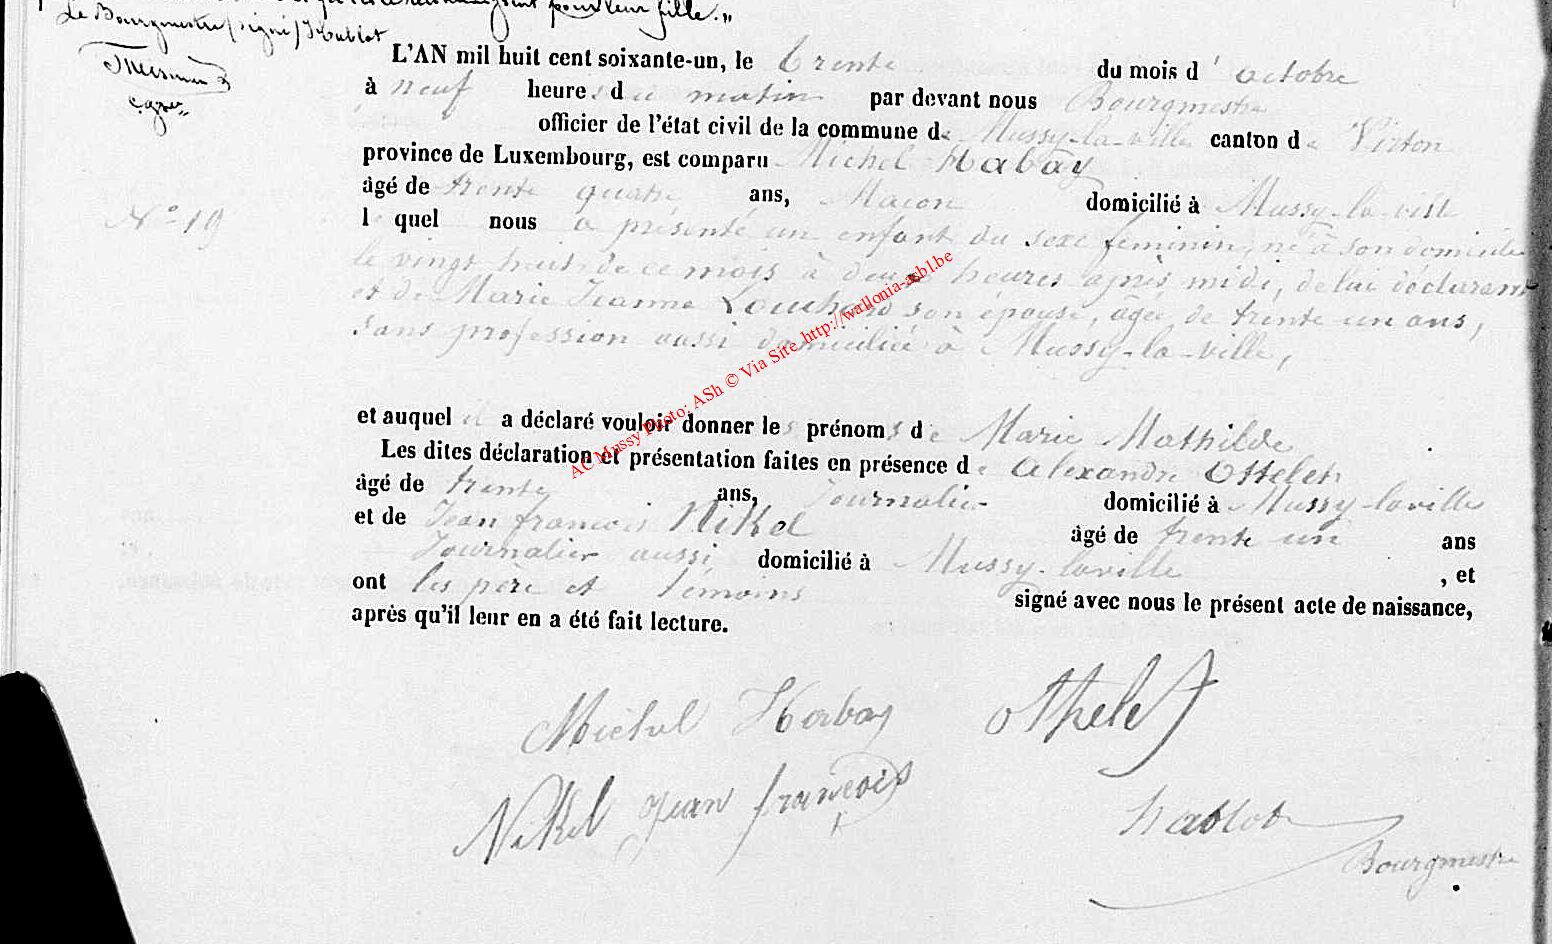 pour leur fille."
Le Bourgmestre (signé) J Hublot
L'AN mil huit cent soixante-un, le trente du mois d'octobre
à neuf heures du matin par devant nous Bourgmestre
officier de l'état civil de la commune de Mussy-la-ville canton de Virton
province de Luxembourg, est comparu Michel Habay
âgé de trente quatre ans, Macon domicilié à Mussy-la-ville
N° 19
lequel nous a présenté un enfant du sexe feminin, né à son domicile
le vingt huit de ce mois à deux heures après midi, de lui déclarant
et de Marie Jeanne Louchard son épouse, agée de trente un ans,
sans profession aussi domiciliée à Mussy-la-ville,
et auquel il a déclaré vouloir donner les prénoms de Marie Mathilde
Les dites déclaration et présentation faites en présence de alexandre Ottelet
âgé de trente ans, Journalier domicilié à Mussy-laville
et de Jean françois Nikel âgé de trente un ans
Journalier aussi domicilié à Mussy-laville , et
ont les père et témoins signé avec nous le présent acte de naissance,
après qu'il leur en a été fait lecture.
AC Mussy Photo: ASh © Via Site http://wallonia-asbl.be
Michel Habay othelet
Nikel Jean françois
hablot
Bourgmestre